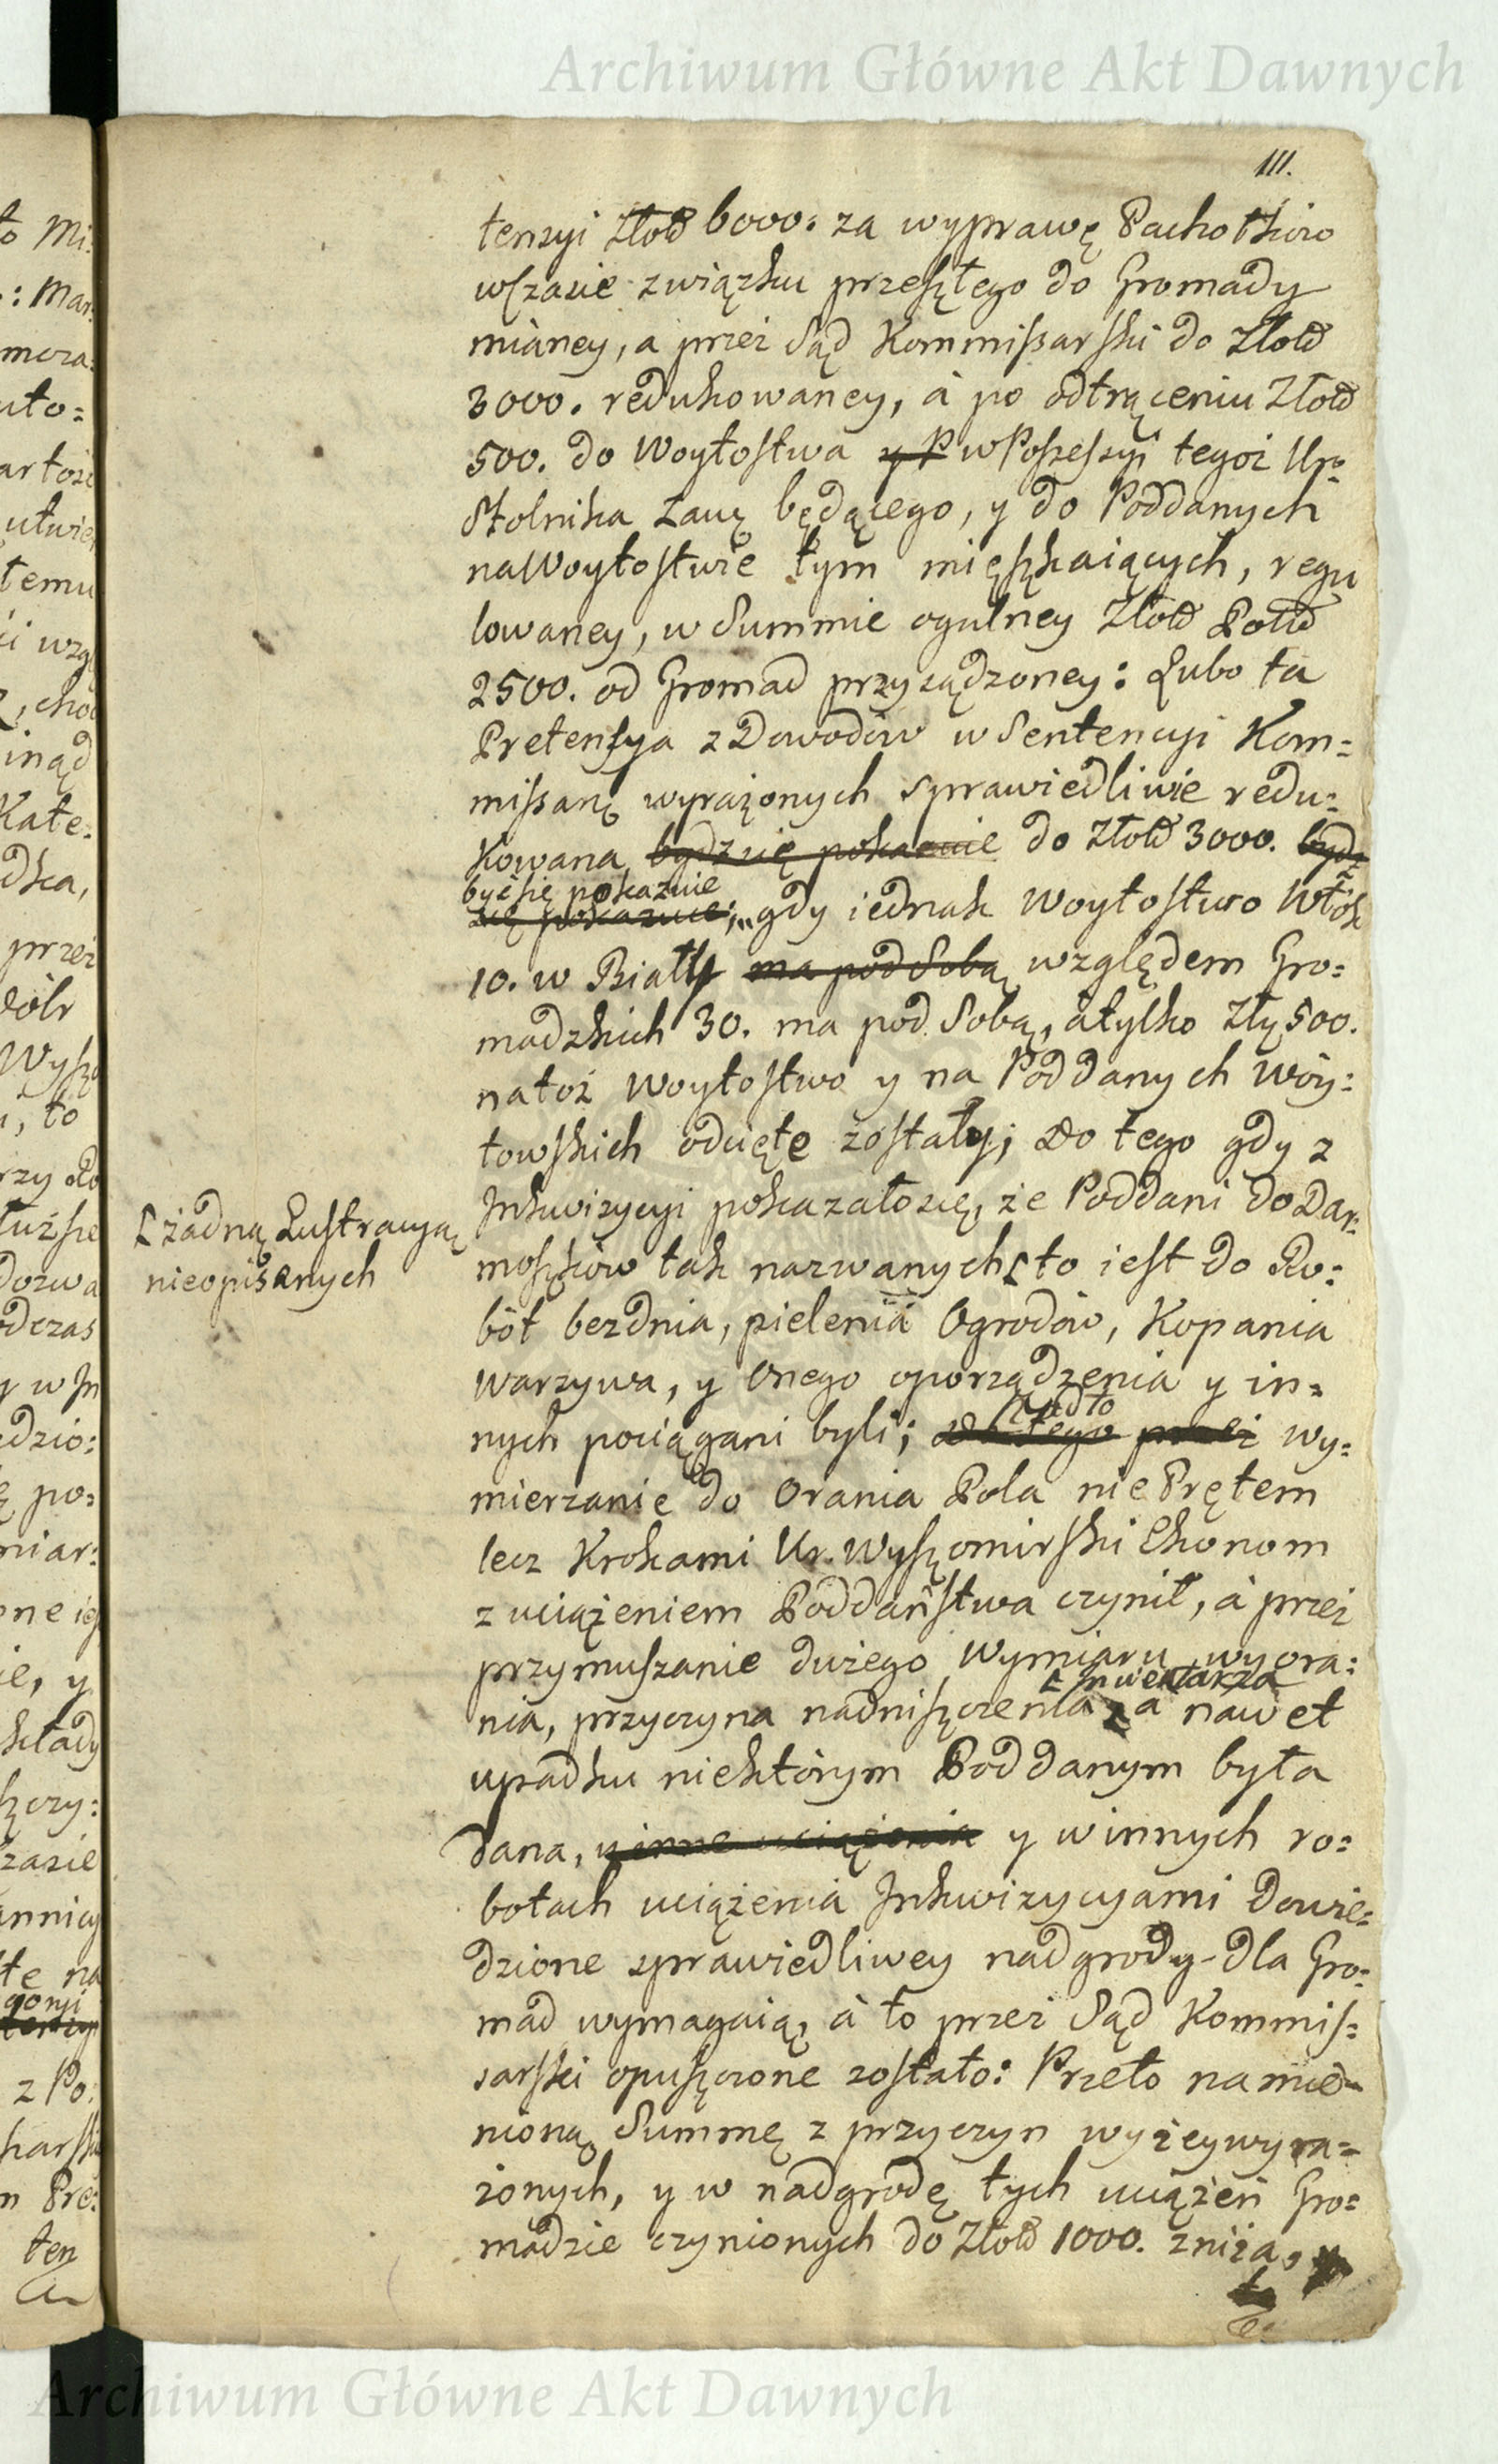 Archiwum Główne Akt Dawnych
111.
tensyi Złott 6000. za wyprawę Pachołków
wczasie związku przeszłego do Gromady
mianey, a przez Sąd Kommissarski do Złott
3000. redukowaney, à po odtrąceniu Złott
500. do Woytostwa y P w Possessyi tegoż Ur:
Stolnika będącego, y do Poddanych
na Woytostwie tym mięszkaiących, regu
lowaney, w Summie ogulney Złott Polch
2500. od Gromad przysądzoney: Lubo ta
Pretensya z Dowodów w Sentencyi Kom=
missarskiey wyrażonych sprawiedliwie redu=
kowana bydź się pokazuie do Złott 3000. bydź
być się pokazuie
się pokazuie; gdy iednak Woytostwo Włók
10. w Biały ma pod Sobą względem Gro=
madzkich 30. ma pod Sobą, a tylko Zły 500.
na toż Woytostwo y na Poddanych Wóy=
towskich odcięte zostały; Do tego gdy z
Inkwizycyi pokazało się, że Poddani do Dar=
moszków tak nazwanych to iest do Ro=
[ żadną Lustracyą
nieopisanych
bót bezdnia, pielenia Ogrodów, Kopania
Warzywa, y Onego oporządzenia y in=
nych pociągani byli; Do tego przez wy=
Nadto
mierzanie do Orania Pola nie Prętem
lecz Krokami Ur. Wyszomirski Ekonom
z uciążeniem Poddaństwa czynił, à przez
przymuszanie dużego Wymiaru wyora=
Inwentarza
nia, przyczyna nadniszczenia a nawet
upadku niektórym Poddanym była
dana, y inne uciążenia y w innych ro=
botach uciążenia Inkwizycyami Dowie=
dzione sprawiedliwey nadgrody dla Gro=
mad wymagaią, à to przez Sąd Kommis=
sarski opuszczone zostało: Przeto namie=
nioną Summę z przyczyn wyżey wyra=
żonych, y w nadgrodę tych uciążeń Gro=
madzie czynionych do Złott 1000. zniża,
Archiwum Główne Akt Dawnych